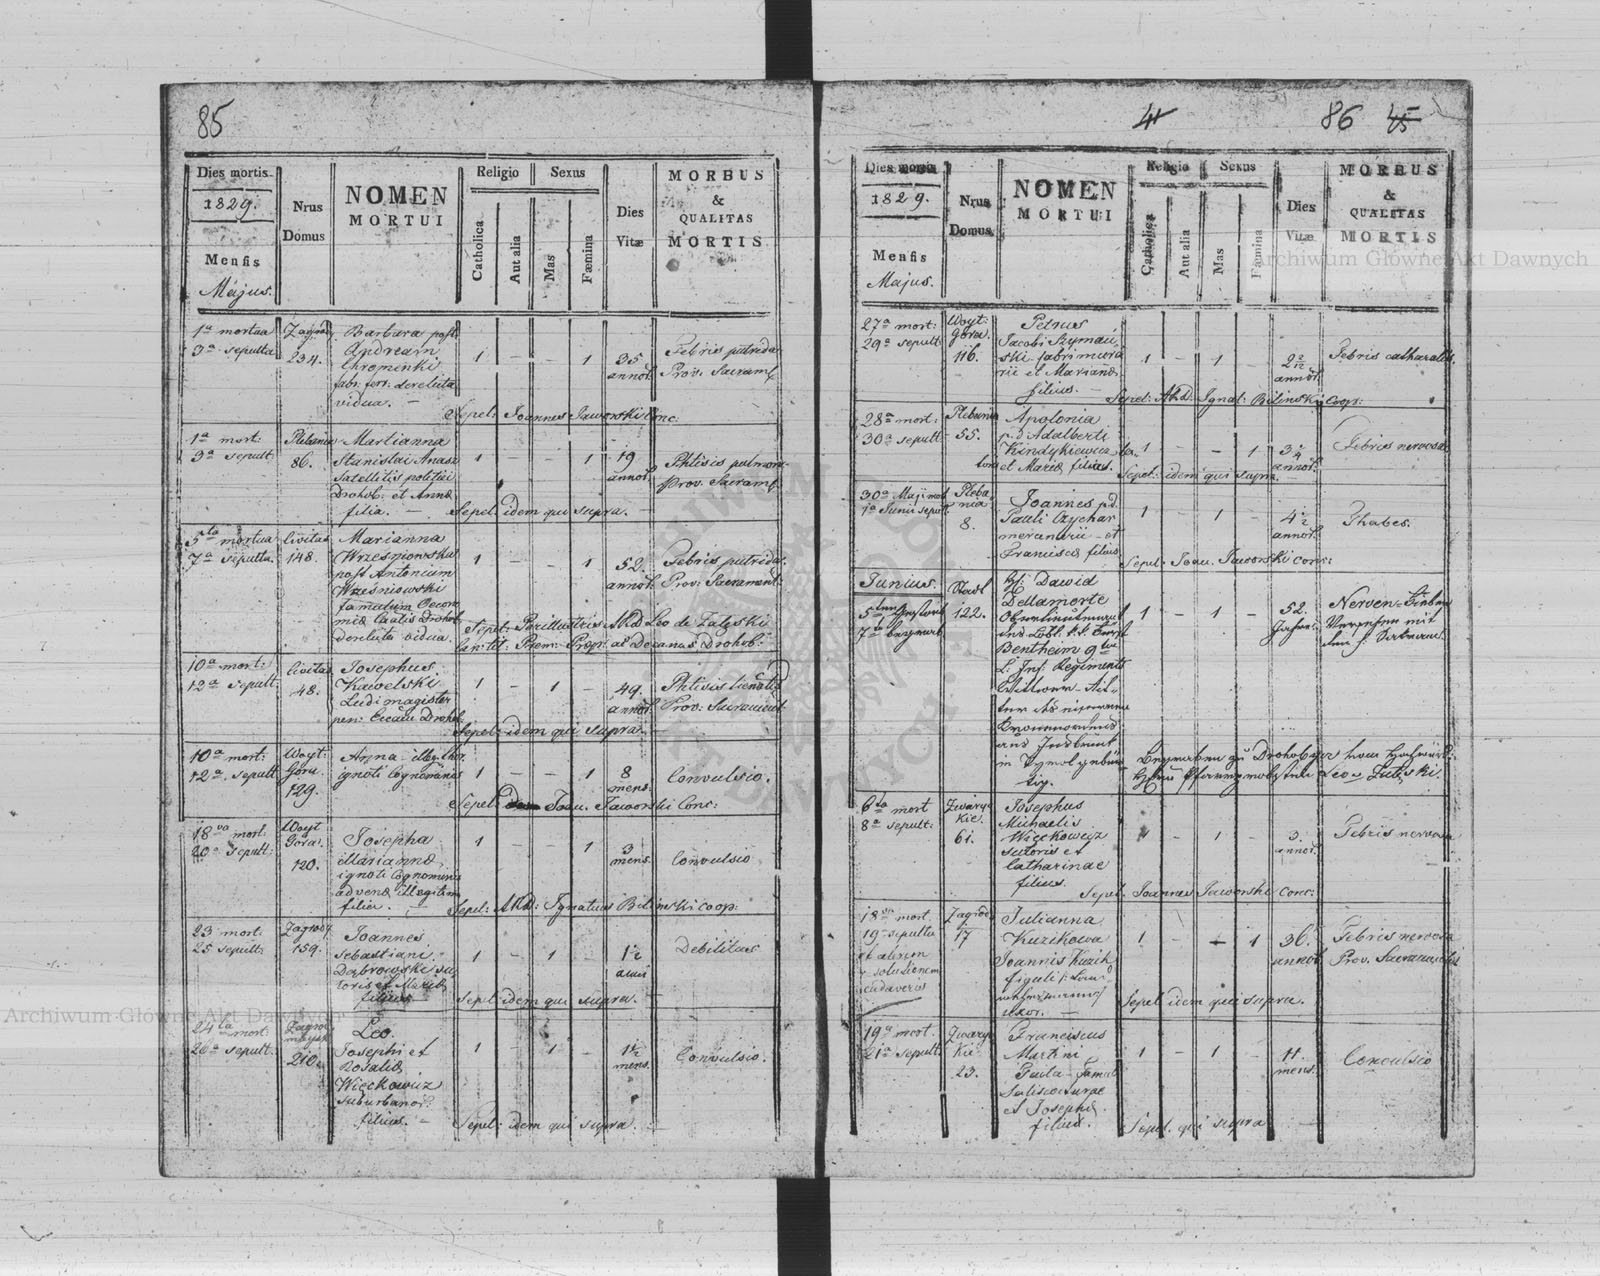 85
Dies mortis
1829.
Mensis
Majus.
Nrus
Domus
NOMEN
MORTUI
Religio
Catholica
Aut alia
Sexus
Mas
Fæmina
Dies
Vitæ
MORBUS
&
QUALITAS
MORTIS
1a mortua
3a sepulta
Zagrod
234.
Barbara post
Andream
Chrominski
fabr: ferr: derelicta
vidua. —
1 - - 1
35
annor:
Febris putrida
Prov: Sacram:
Sepel: Joannes Jaworski Conc:
1a mort:
3a sepult
Plebania
86.
Marianna
Stanislai
Satellitis politiei
Drohob: et Annæ
filia. —
1 - - 1
19
annor:
Phtisis pulmon:
Prov. Sacram:
Sepel: idem qui supra. —
5ta mortua
7a sepulta
Civitas
148.
Marianna
Wrzesniowska
post Antonium
Wrzesniowski
famulum
derelicta vidua.
1 - - 1
52.
annor:
Febris putrida.
Prov: Sacrament:
Sepel: Perillustris A.R.D. Leo de Zaleski
Can: tit: Prem: Propr: ac Decanus Drohob:
10a mort:
12a sepult:
Civitas
48.
Josephus
Kawelski
Ludimagister
1 - 1 -
49.
annor:
Phtisis
Prov: Sacrament
Sepel: idem qui supra. —
10a mort:
12a sepult
Woyt:
Gora
129.
Anna illeg: thor:
ignoti Cognominis
1 - - 1
8
mens:
Convulsio.
Sepel: Joan: Jaworski Conc:
18va mort:
20a sepult:
Woyt
Gora.
120.
Josepha
Mariannæ
ignoti Cognominis
advenæ illegitim
filia. —
1 - - 1
3
mens.
Convulsio
Sepel: A.R.D: Ignatius Bilinski coop:
23 mort:
25 sepult:
Zagrody
159.
Joannes
Sebastiani
Dabrowski su
toris et Mariæ
filius
1 - 1 -
1½
anni
Debilitas
Sepel: idem qui supra. —
24ta mort:
26a sepult.
210.
Leo.
Josephi et
Rosaliæ
Więckowicz
suburbanor:
filius. —
1 - 1 -
1½
mens.
Convulsio.
Sepel: idem qui supra. —
41
86 45
Dies mortis
1829.
Mensis
Majus.
Nrus
Domus
NOMEN
MORTUI
Religio
Catholica
Aut alia
Sexus
Mas
Fæmina
Dies
Vitæ
MORBUS
&
QUALITAS
MORTIS
27a mort:
29a sepult:
Woyt:
Gora.
116.
Petrus
Jacobi Szymań
ski fabri mura
rii et Mariannæ
filius. —
1 - 1 -
annor:
Febris catharalis.
Sepel: A.R.D: Ignat: Bilinski coop:
28a mort:
30a sepult:
Plebania
55.
Apolonia
p.d Adalberti
Kindykiewicz
et Mariæ filia.
1 - - 1
annor:
Febris nervosa
Sepel: idem qui supra. —
30a Maji mort
1a Junii sepult
Pleba
nia
8.
Joannes p.d.
Pauli Czychar
mercenarii et
Franciscæ filius
1 - 1 -
4½
annor:
Thabes.
Sepel: Joan: Jaworski Conc:
Junius.
5ten gestorb
7ten begrab
Stadt
122.
H: Dawid
Dellamorte
Oberlieutenant
Bentheim 9ten
L: Inf: Regiments
aus Insbruck
in Tyrol gebür
tig.
1 - 1 -
52.
Jahre.
Nerven Fieber
Versehen mit
Begraben zu Drohobycz vom
Leo Zaleski.
6ta mort
8a sepult:
Zwarye
kie.
61.
Josephus
Michaelis
Więckowicz
sutoris et
Catharinae
filius.
1 - 1 -
3
annor:
Febris nervosa
Sepel: Joannes Jaworski Conc:
18va mort.
19 sepulta
cadaveris
Zagrod
17
Julianna
Kuzikowa
Joannis Kuzik
figuli
uxor. —
1 - - 1
36.
annor
Febris nervosa
Prov. Sacramentis
Sepel idem qui supra.
19a mort.
21a sepult:
Zwary
kie
23.
Franciscus
Martini
et Josephæ
filius.
1 - 1 -
11.
mens:
Convulsio
Sepel. qui supra —
Archiwum Główne Akt Dawnych
Archiwum Główne Akt Dawnych